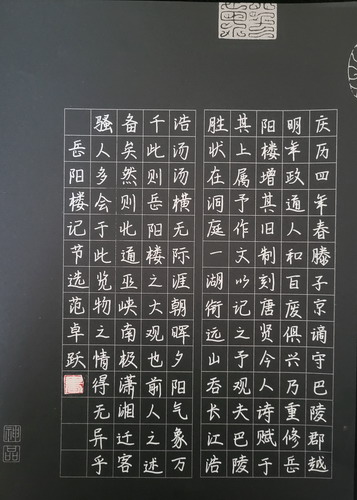 庆历四年春滕子京谪守巴陵郡越
明年政通人和百废俱兴乃重修岳
阳楼增其旧制刻唐贤今人诗赋于
其上属予作文以记之予观夫巴陵
胜状在洞庭一湖衔远山吞长江浩
浩汤汤横无际涯朝晖夕阳气象万
千此则岳阳楼之大观也前人之述
备矣然则北通巫峡南极潇湘迁客
骚人多会于此览物之情得无异乎
岳阳楼记节选范卓跃